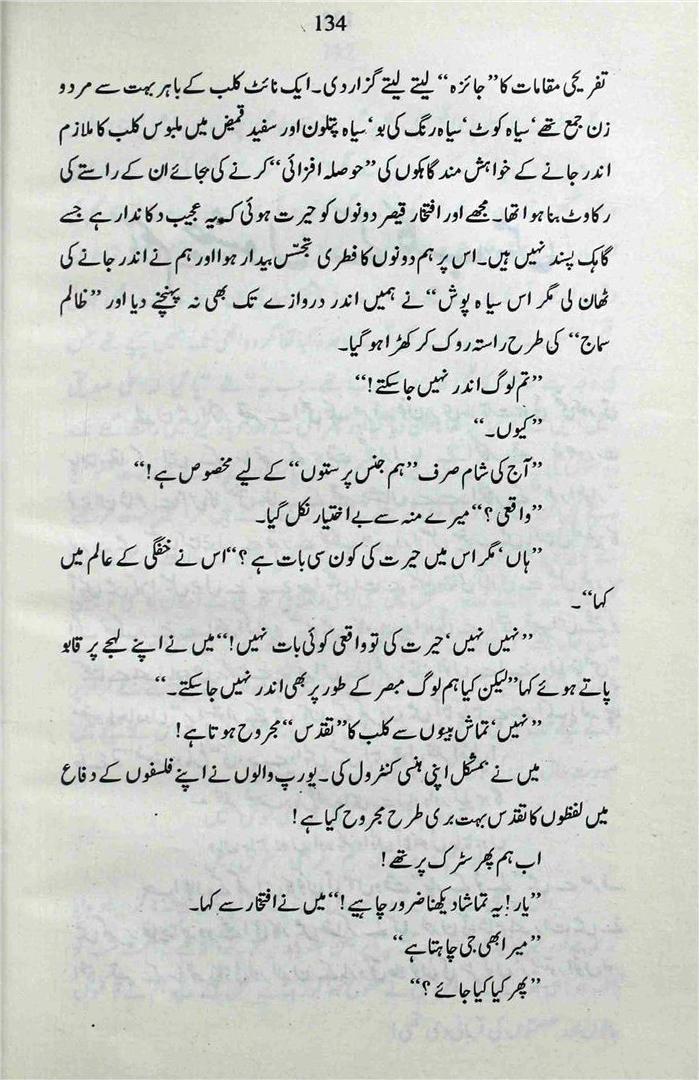 134
تفریحی مقامات کا ”جائزہ“ لیتے لیتے گزار دی۔ ایک نائٹ کلب کے باہر بہت سے مرد و
زن جمع تھے‘ سیاہ کوٹ‘ سیاہ رنگ کی بو‘ سیاہ پتلون اور سفید قمیض میں ملبوس کلب کا ملازم
اندر جانے کے خواہش مند گاہکوں کی ”حوصلہ افزائی“ کرنے کی بجائے ان کے راستے کی
رکاوٹ بنا ہوا تھا۔ مجھے اور افتخار قیصر دونوں کو حیرت ہوئی کہ یہ عجیب دکاندار ہے جسے
گاہک پسند نہیں ہیں۔ اس پر ہم دونوں کا فطری تجسّس بیدار ہوا اور ہم نے اندر جانے کی
ٹھان لی مگر اس سیاہ پوش“ نے ہمیں اندر دروازے تک بھی نہ پہنچنے دیا اور ”ظالم
سماج“ کی طرح راستہ روک کر کھڑا ہو گیا۔
”تم لوگ اندر نہیں جا سکتے!“
”کیوں۔“
”آج کی شام صرف ”ہم جنس پرستوں“ کے لیے مخصوص ہے!“
”واقعی؟“ میرے منہ سے بے اختیار نکل گیا۔
”ہاں‘ مگر اس میں حیرت کی کون سی بات ہے؟“ اس نے خفگی کے عالم میں
کہا“۔
”نہیں نہیں‘ حیرت کی تو واقعی کوئی بات نہیں!“ میں نے اپنے لہجے پر قابو
پاتے ہوئے کہا ”لیکن کیا ہم لوگ مبصر کے طور پر بھی اندر نہیں جا سکتے۔“
”نہیں‘ تماش بینوں سے کلب کا ”تقدس“ مجروح ہوتا ہے!
میں نے بمشکل اپنی ہنسی کنٹرول کی۔ یورپ والوں نے اپنے فلسفوں کے دفاع
میں لفظوں کا تقدس بہت بری طرح مجروح کیا ہے!
اب ہم پھر سڑک پر تھے!
”یار! یہ تماشا دیکھنا ضرور چاہیے!“ میں نے افتخار سے کہا۔
”میرا بھی جی چاہتا ہے“
”پھر کیا کیا جائے؟“